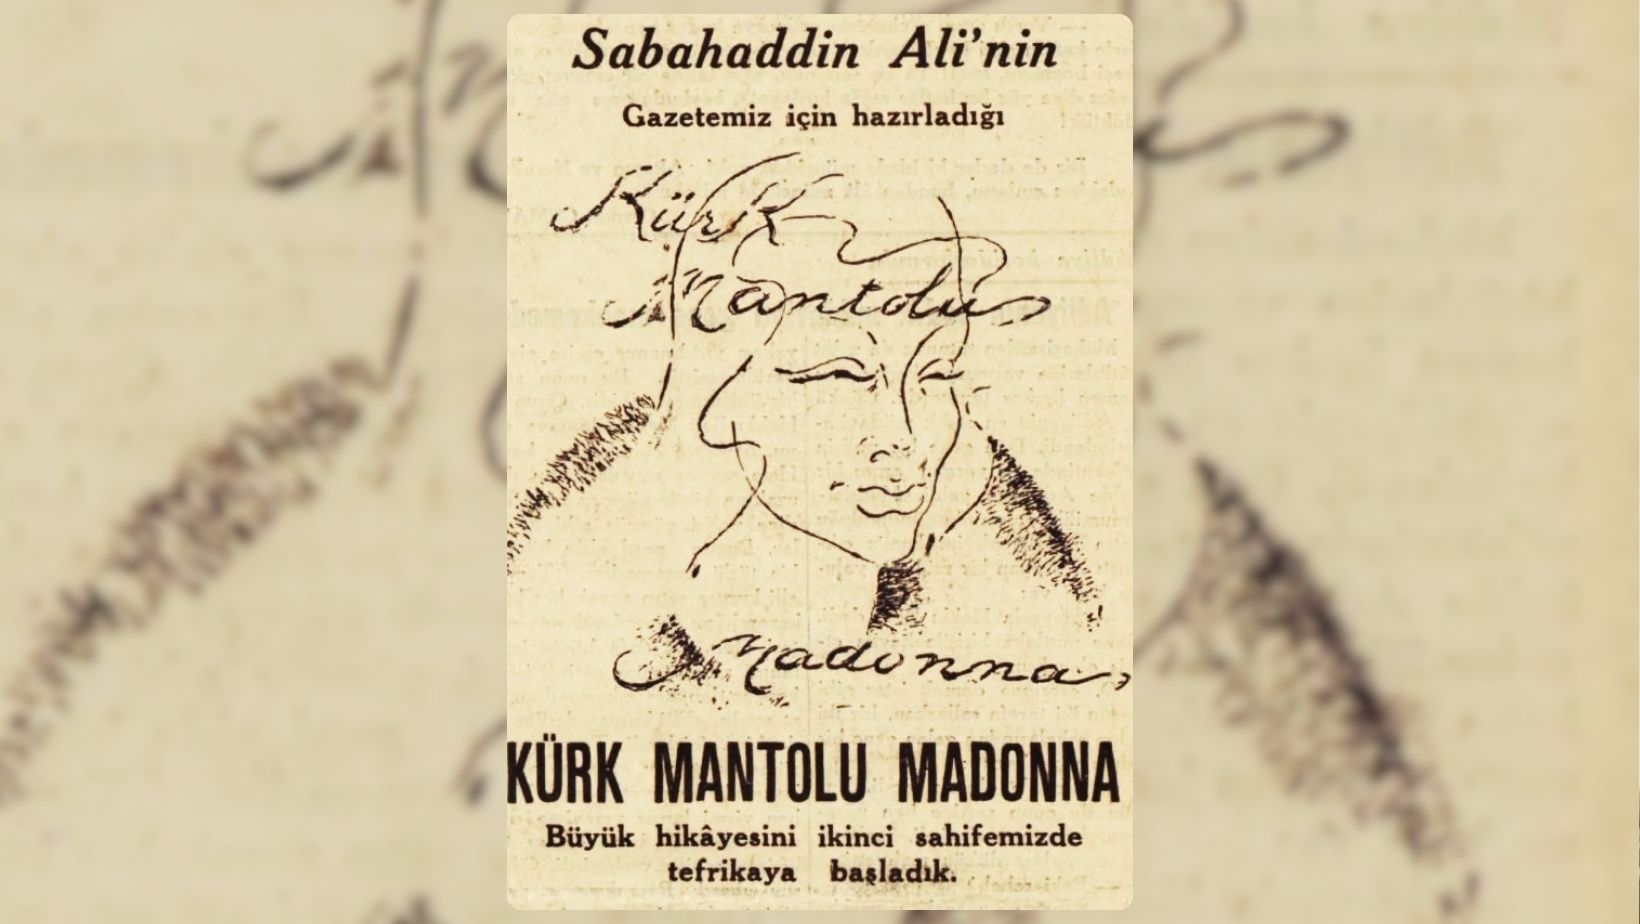 Sabahaddin Ali'nin
Gazetemiz için hazırladığı
Kürk
Mantolu
Madonna
KÜRK MANTOLU MADONNA
Büyük hikâyesini ikinci sahifemizde
tefrikaya başladık.